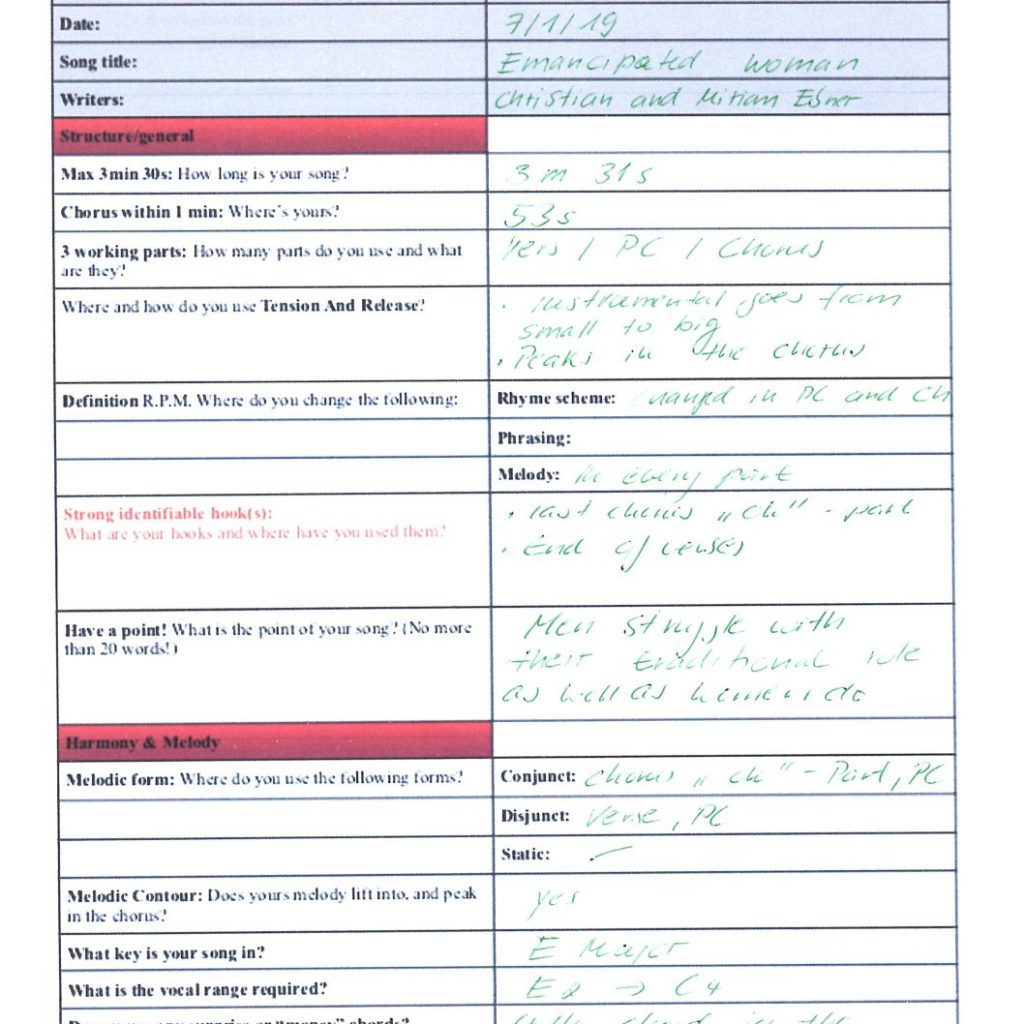 Date: 7/1/19
Song title: Emancipated woman
Writers: Christian and Miriam Ebner
Structure/general
Max 3min 30s: How long is your song? 3 m 31 s
Chorus within 1 min: Where's yours? 53s
3 working parts: How many parts do you use and what Vers / PC / Chorus
are they?
Where and how do you use Tension And Release? · Instrumental goes from
small to big
· Peaks in the chorus
Definition R.P.M. Where do you change the following: Rhyme scheme: changed in PC and CH
Phrasing:
Melody: In every part
Strong identifiable hook(s): · last chorus „ch" - part
What are your hooks and where have you used them? · End of verses
Have a point! What is the point of your song? (No more Men struggle with
than 20 words!) their traditional role
as well as women do
Harmony & Melody
Melodic form: Where do you use the following forms? Conjunct: Chorus „ch" - Part, PC
Disjunct: Verse, PC
Static:
Melodic Contour: Does yours melody lift into, and peak yes
in the chorus?
What key is your song in? E Major
What is the vocal range required? E2 → C4